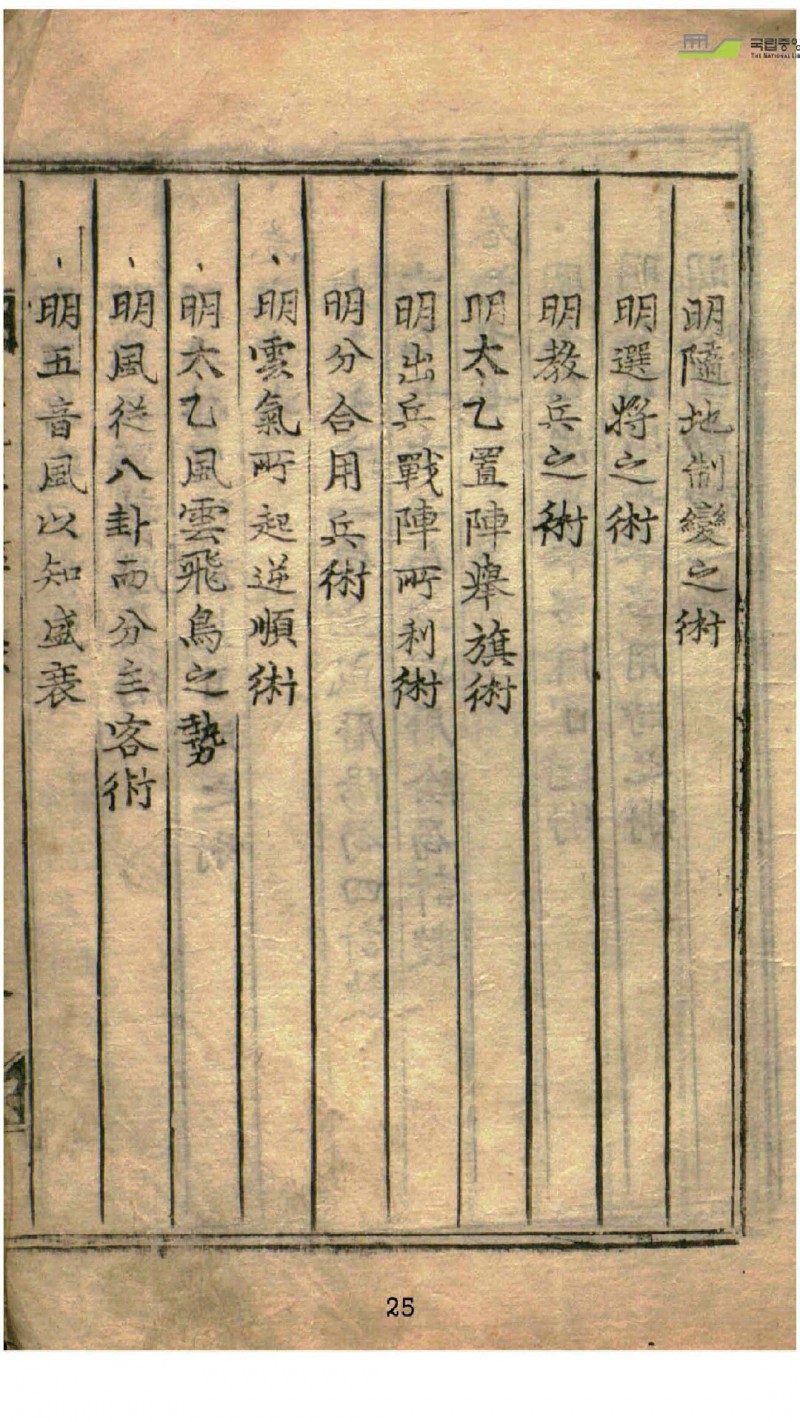 국립중앙
THE NATIONAL LIB
明隨地制變之術
明選將之術
明教兵之術
明太乙置陣舉旗術
明出兵戰陣所利術
明分合用兵術
、明雲氣所起逆順術
、明太乙風雲飛鳥之勢
、明風從八卦而分主客術
、明五音風以知盛衰
25